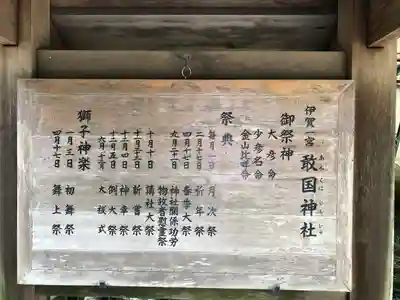 伊賀一宮 敢国神社
あえくにじんじゃ
御祭神
大彦命
少彦名命
金山比咩命
祭典
毎月一日 月次祭
二月十七日 祈年祭
四月十七日 春季大祭
九月二十一日 神社関係功労物故者慰霊祭
十月十日 講社大祭
十一月二十三日 新嘗祭
十二月四日 神幸祭
十二月五日 例大祭
六月・十二月 大祓式
獅子神楽
一月三日 初舞祭
四月十七日 舞上祭